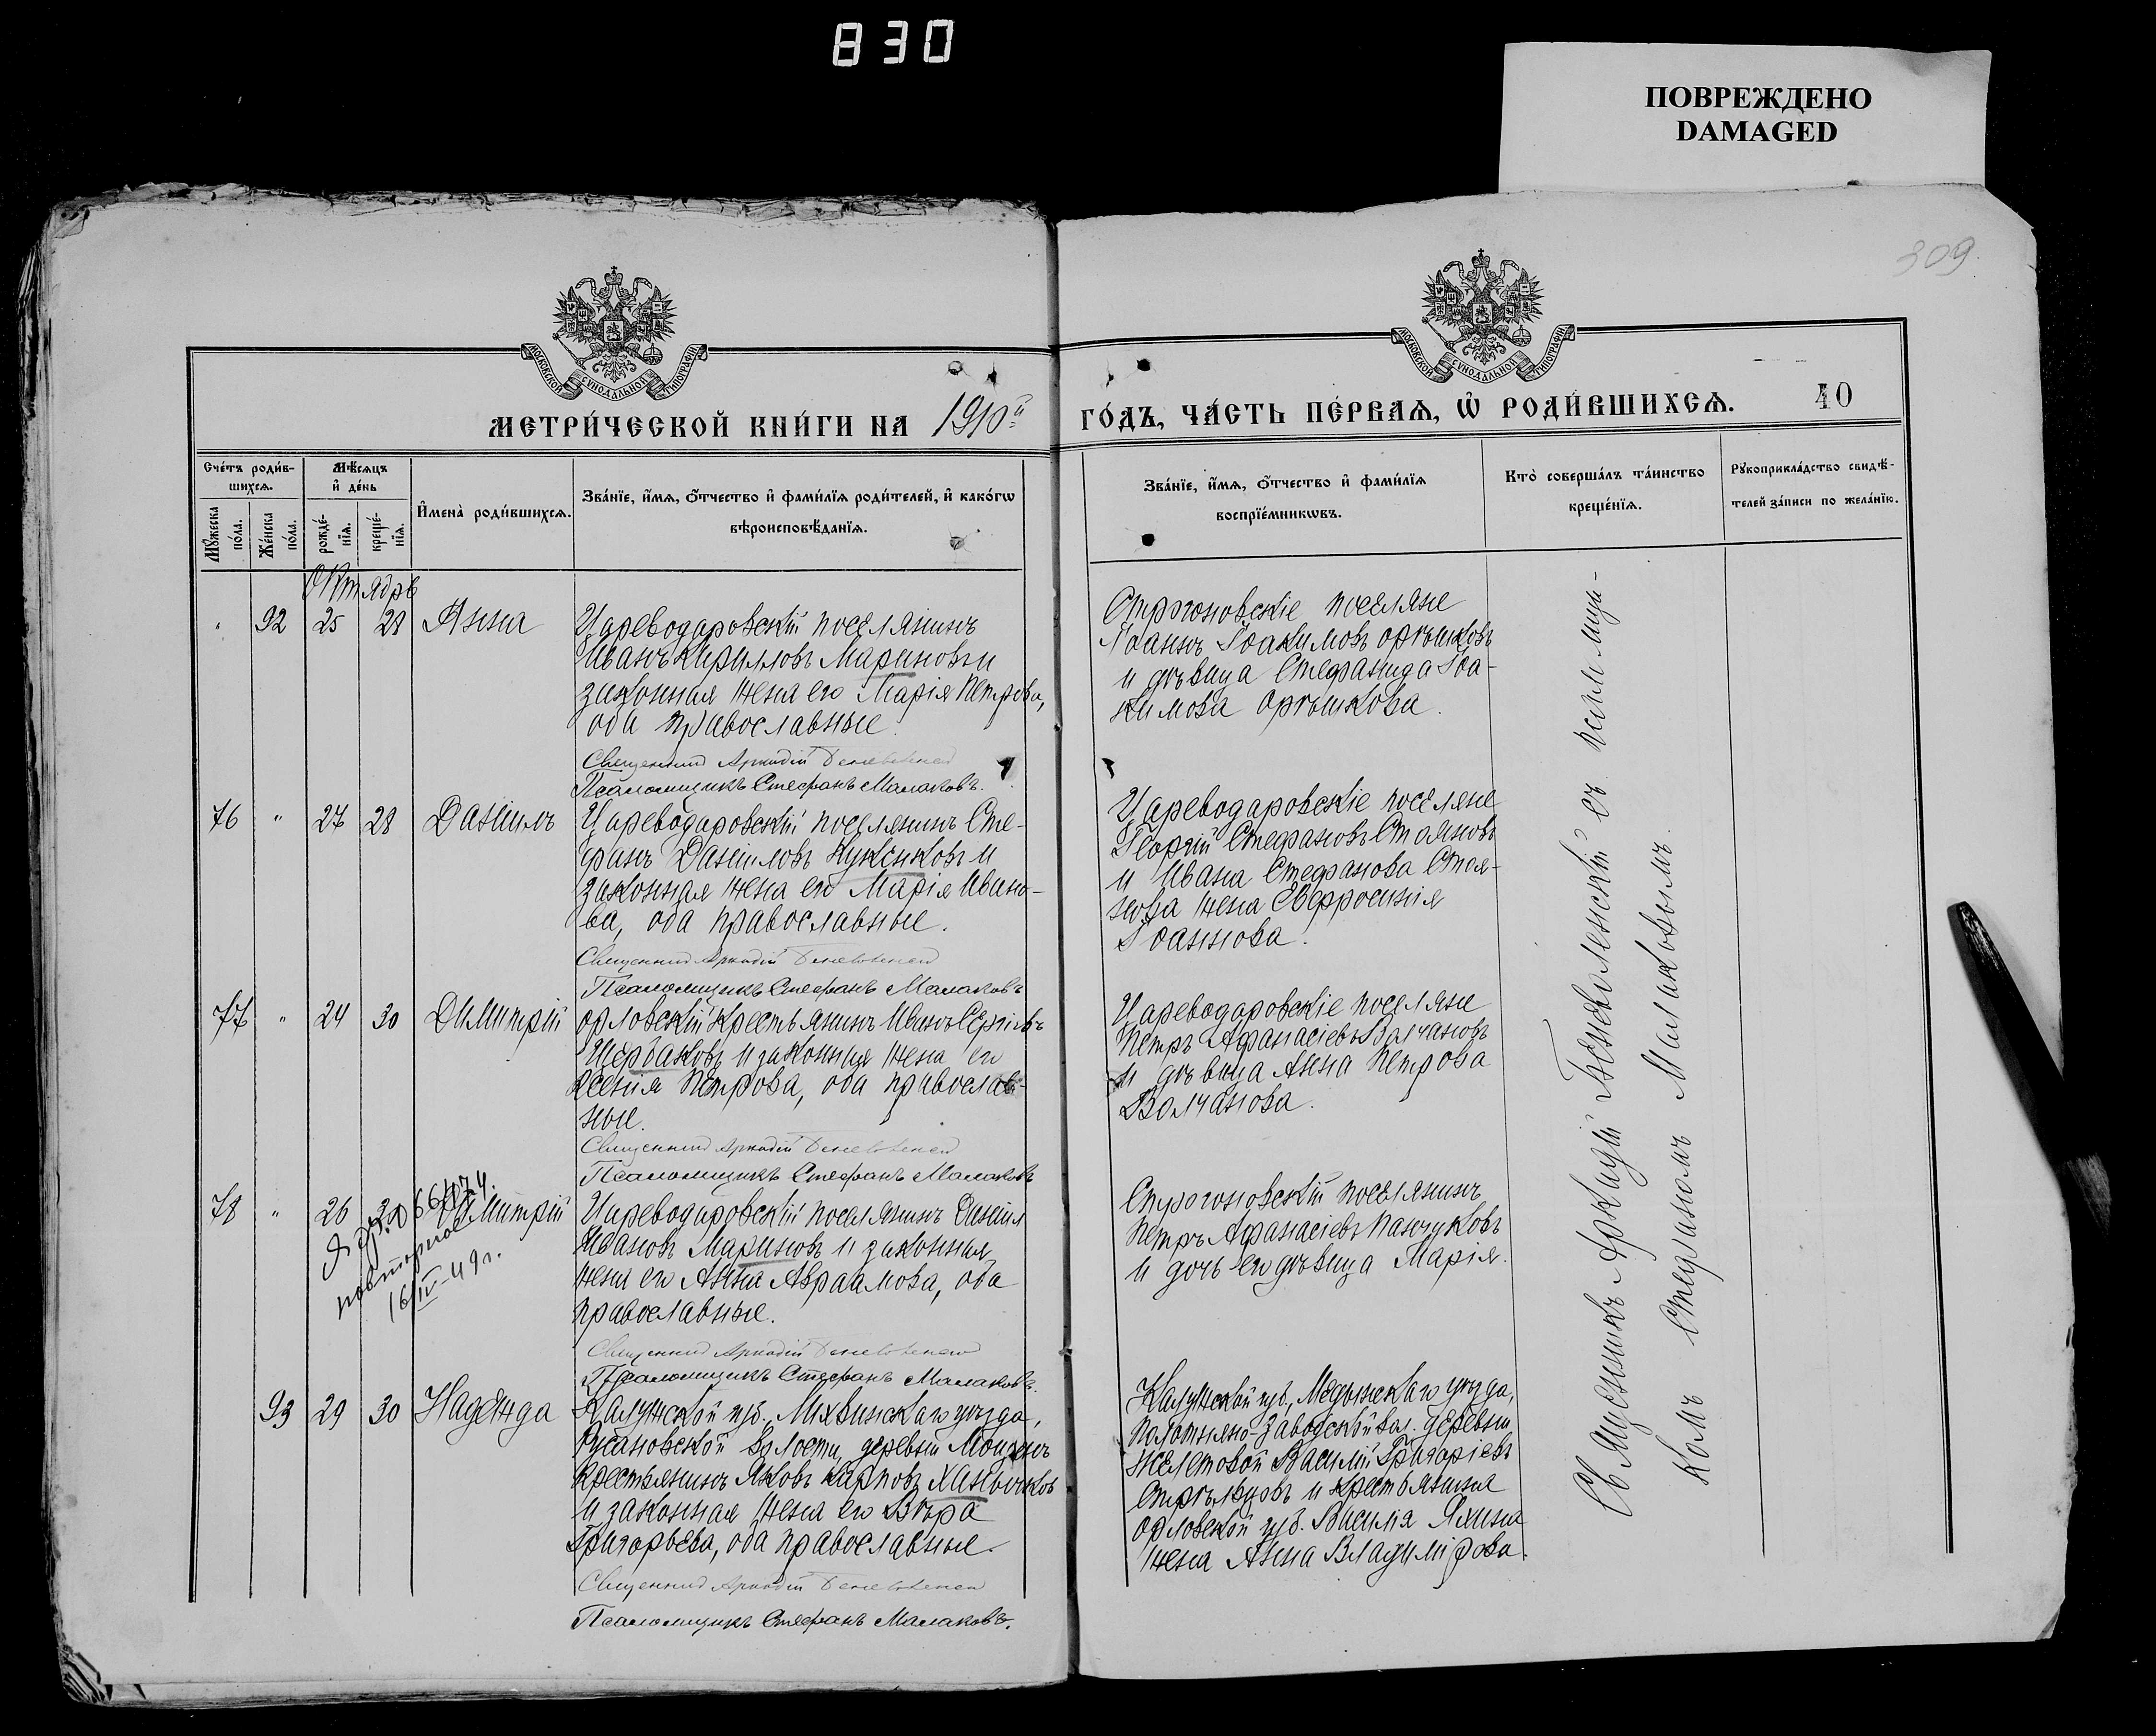 830
ПОВРЕЖДЕНО
DAMAGED
309.
МОСКОВСКОЙ СѴНОДАЛЬНОЙ ТИПОГРАФІИ
МОСКОВСКОЙ СѴНОДАЛЬНОЙ ТИПОГРАФІИ
МЕТРИ́ЧЕСКОЙ КНИ́ГИ НА 1910й
ГО́ДЪ, ЧА́СТЬ ПЕ́РВАѦ, Ѡ҆ РОДИ́ВШИХСѦ. 40
Сче́тъ роди́в-
шихсѧ.
Мꙋ́жеска по́ла.
Же́нска по́ла.
Мѣ́сѧцъ
и҆ де́нь
рожде́-
нїѧ.
креще́-
нїѧ.
И҆мена̀ роди́вшихсѧ.
Зва́нїе, и҆́мѧ, ѻ҆́тчество и҆ фами́лїѧ роди́телей, и҆ како́гѡ
вѣроисповѣ́данїѧ.
Зва́нїе, и҆́мѧ, ѻ҆́тчество и҆ фами́лїѧ
воспрїе́мникѡвъ.
Кто̀ соверша́лъ та́инство
креще́нїѧ.
Рꙋкоприкла́дство свидѣ́-
телей за́писи по жела́нїю.
Октябрь
" 92 25 28 Анна
Цареводаровскій поселянинъ
Иванъ Кирилловъ Мариновъ и
законная жена его Марія Петрова,
оба православные.
Священникъ Аркадій Беневоленскій
Псаломщикъ Стефанъ Малаковъ.
Строгоновскіе поселяне
Іоаннъ Іоакимовъ Орѣшковъ
и дѣвица Стефанида Іоа-
кимова Орѣшкова.
76 " 27 28 Даніилъ
Цареводаровскій поселянинъ Сте-
фанъ Даніиловъ Куксиковъ и
законная жена его Марія Ивано-
ва, оба православные.
Священникъ Аркадій Беневоленскій
Псаломщикъ Стефанъ Малаковъ
Цареводаровскіе поселяне
Георгій Стефановъ Стояновъ
и Ивана Стефанова Стоя-
нова жена Евфросинія
Іоаннова.
77 " 24 30 Димитрій
Орловскій крестьянинъ Иванъ Сергіевъ
Щербаковъ и законная жена его
Ксенія Петрова, оба православ-
ные.
Священникъ Аркадій Беневоленскій
Псаломщикъ Стефанъ Малаковъ
Цареводаровскіе поселяне
Петръ Афанасіевъ Волчановъ
и дѣвица Анна Петрова
Волчанова.
78 " 26 30 Димитрій
повторное
16/IV-49г.
Цареводаровскій поселянинъ Даніилъ
Ивановъ Мариновъ и законная
жена его Анна Авраамова, оба
православные.
Священникъ Аркадій Беневоленскій
Псаломщикъ Стефанъ Малаковъ.
Строгоновскій поселянинъ
Петръ Афанасіевъ Панчуковъ
и дочь его дѣвица Марія.
93 29 30 Надежда
Калужской губ., Лихвинскаго уѣзда,
Русановской волости, деревни
крестьянинъ Яковъ Карповъ Ханычковъ
и законная жена его Вѣра
Григорьева, оба православные.
Священникъ Аркадій Беневоленскій
Псаломщикъ Стефанъ Малаковъ.
Калужской губ., Медынскаго уѣзда,
Полотняно-Заводской вол. деревни
Желтовой Василій Григоріевъ
Стрѣльцовъ и крестьянина
Орловской губ. Василія Яхина
жена Анна Владимірова.
Священникъ Аркадій Беневоленскій съ псаломщи-
комъ Стефаномъ Малаковымъ.